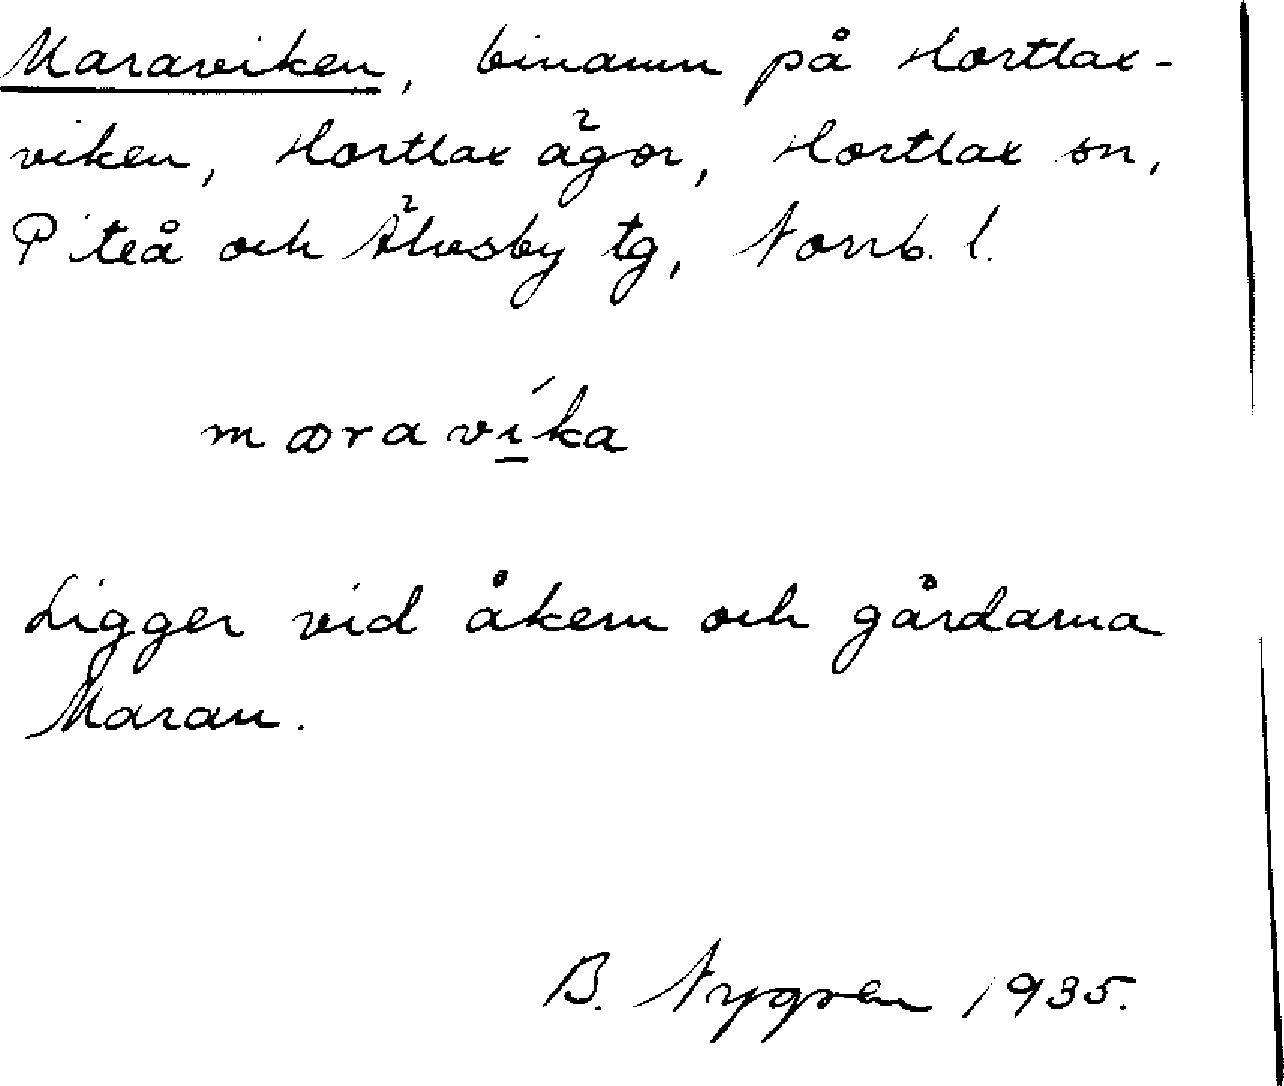 Maraviken, binamn på Hortlax-
viken, Hortlax ägor, Hortlax sn,
Piteå och Älvsby tg, Norrb. l.
mæraví̲ka
Ligger vid åkern och gårdarna
Maran.
B. Nygren 1935.